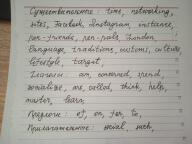 Существительное: time, networking,
sites, Facebook, Instagram, instance,
pen-friends, pen-pals, London,
language, traditions, customs, culture
lifestyle, target,
Глаголы: am, concerned, spend,
socialize, are, called, think, help,
master, learn,
Предлоги: of, on, for, to,
Прилагательное: social, such,